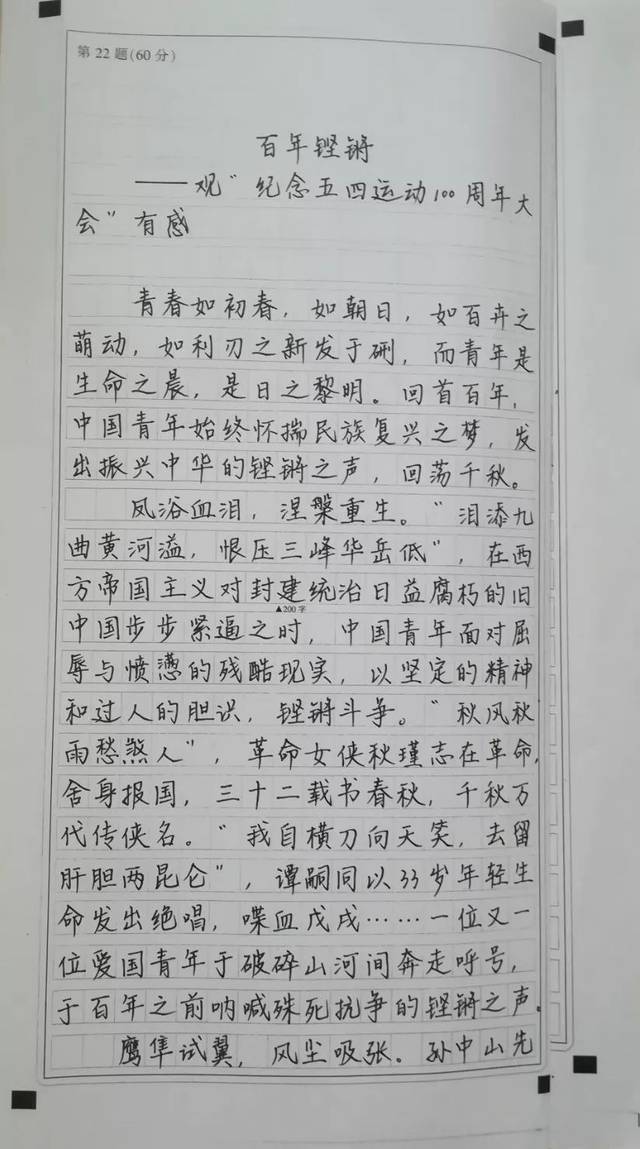 第 22 题(60 分)
百年铿锵
——观“纪念五四运动100周年大
会”有感
青春如初春，如朝日，如百卉之
萌动，如利刃之新发于硎，而青年是
生命之晨，是日之黎明。回首百年，
中国青年始终怀揣民族复兴之梦，发
出振兴中华的铿锵之声，回荡千秋。
凤浴血泪，涅槃重生。“泪添九
曲黄河溢，恨压三峰华岳低”，在西
方帝国主义对封建统治日益腐朽的旧
▲200 字
中国步步紧逼之时，中国青年面对屈
辱与愤懑的残酷现实，以坚定的精神
和过人的胆识，铿锵斗争。“秋风秋
雨愁煞人”，革命女侠秋瑾志在革命，
舍身报国，三十二载书春秋，千秋万
代传侠名。“我自横刀向天笑，去留
肝胆两昆仑”，谭嗣同以33岁年轻生
命发出绝唱，喋血戊戌……一位又一
位爱国青年于破碎山河间奔走呼号，
于百年之前呐喊殊死抗争的铿锵之声。
鹰隼试翼，风尘吸张。孙中山先